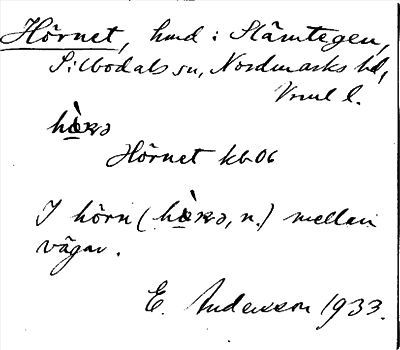 Hörnet, hmd: Slämtegen,
Silbodals sn, Nordmarks hd,
Vrml l.
Hörnet kb 06
I hörn ( , n.) mellan
vägar.
E. Andersson 1933.